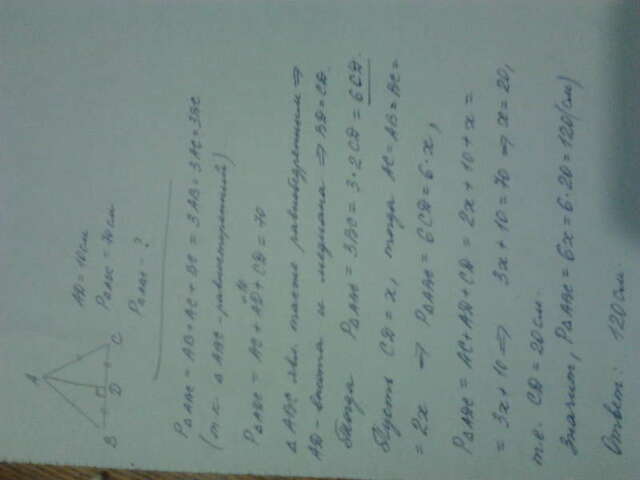 A
B D C
AD = 10 см
P△ADC = 70 см
P△ABC = ?
P△ABC = AB + AC + BC = 3AB = 3AC = 3BC
(т.к. △ABC - равносторонний)
P△ADC = AC + AD + CD = 70
△ABC явл. также равнобедренным ⇒
AD - высота и медиана ⇒ BD = CD.
Тогда P△ABC = 3BC = 3·2CD = 6CD.
Пусть CD = x, тогда AC = AB = BC =
= 2x ⇒ P△ABC = 6CD = 6·x,
P△ADC = AC + AD + CD = 2x + 10 + x =
= 3x + 10 ⇒ 3x + 10 = 70 ⇒ x = 20,
т.е. CD = 20 см.
Значит, P△ABC = 6x = 6·20 = 120 (см)
Ответ: 120 см.